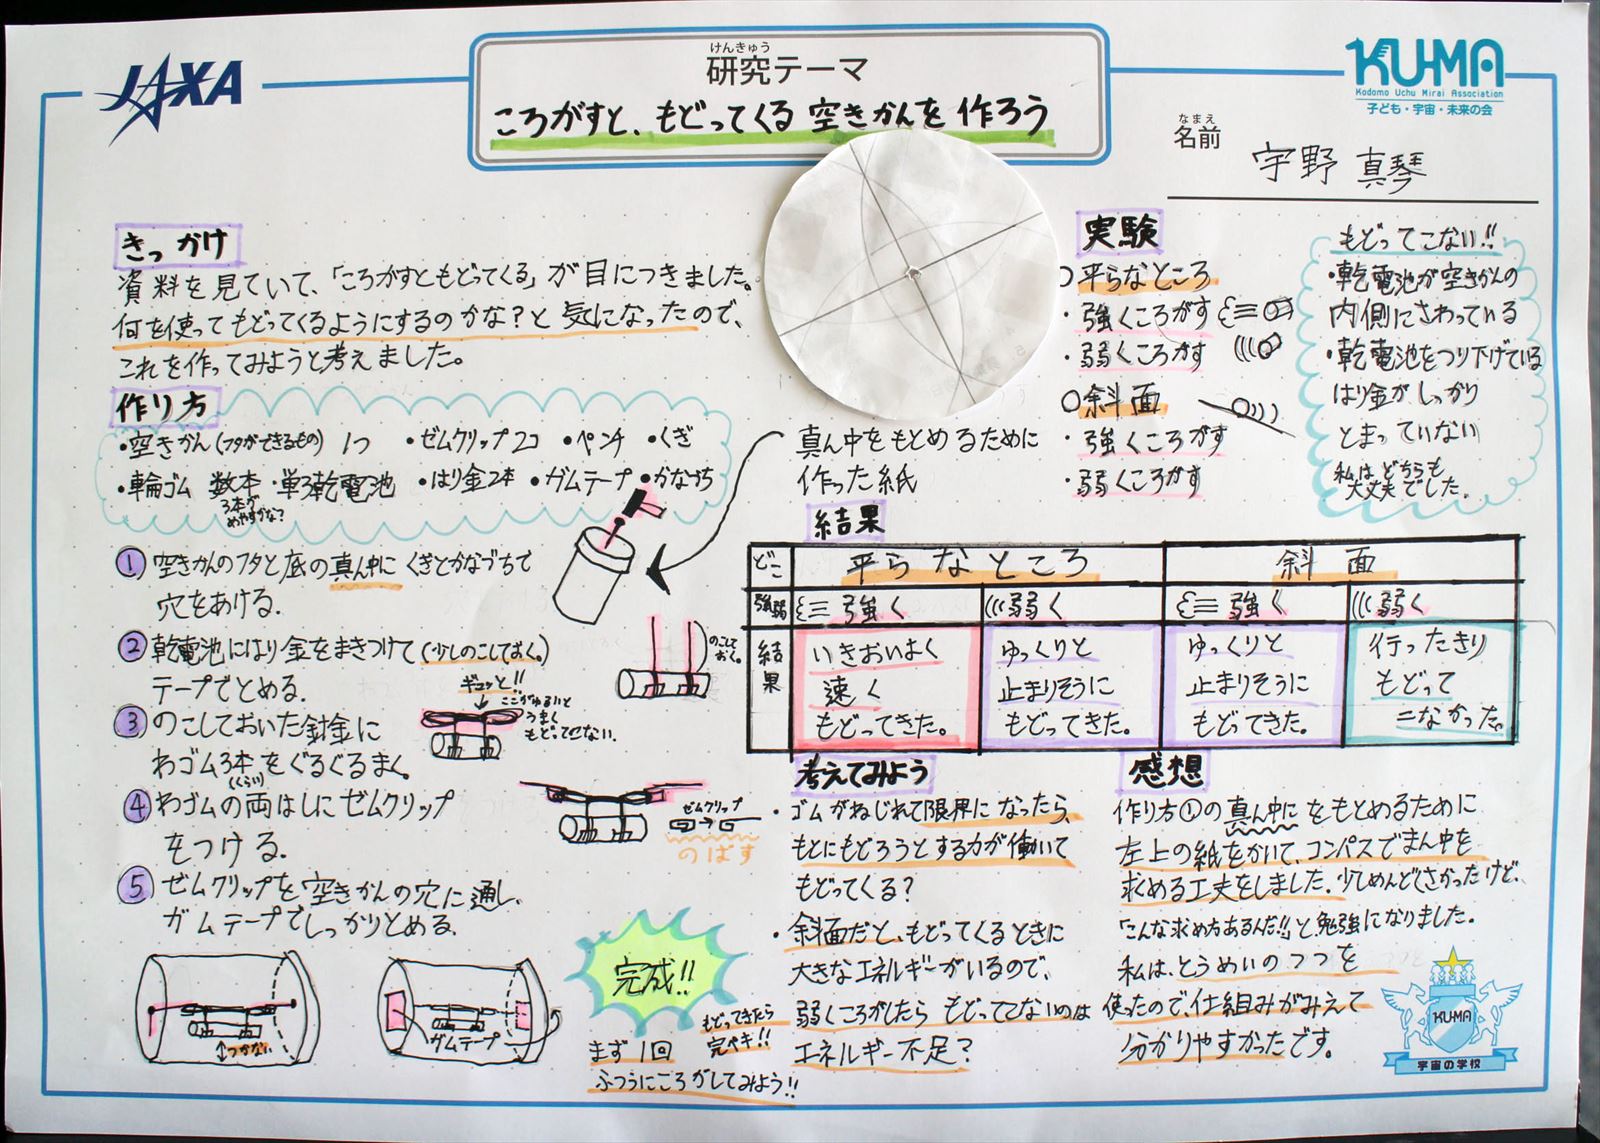 JAXA
けんきゅう
研究テーマ
ころがすと、もどってくる空きかんを作ろう
KU-MA
Kodomo Uchu Mirai Association
子ども・宇宙・未来の会
なまえ
名前
宇野 真琴
きっかけ
資料を見ていて、「ころがすともどってくる」が目につきました。
何を使ってもどってくるようにするのかな？と気になったので、
これを作ってみようと考えました。
作り方
・空きかん(フタができるもの) 1つ ・ゼムクリップ2コ ・ペンチ ・くぎ
・輪ゴム 数本 ・単3乾電池 ・はり金2本 ・ガムテープ ・かなづち
3本が
めやすかな？
① 空きかんのフタと底の真ん中にくぎとかなづちで
穴をあける.
② 乾電池にはり金をまきつけて(少しのこしておく。)
テープでとめる.
のこして
おく。
③ のこしておいた針金に
わゴム3本をぐるぐるまく。
(くらい)
ギュッと!!
ここがゆるいと
うまく
もどってこない.
④ わゴムの両はしにゼムクリップ
をつける.
ゼムクリップ
のばす
⑤ ゼムクリップを空きかんの穴に通し、
ガムテープでしっかりとめる.
つかない
ガムテープ
完成!!
まず1回
ふつうにころがしてみよう!!
もどってきたら
完ペキ!!
真ん中をもとめるために
作った紙
実験
○平らなところ
・強くころがす
・弱くころがす
○斜面
・強くころがす
・弱くころがす
もどってこない!!
・乾電池が空きかんの
内側にさわっている
・乾電池をつり下げている
はり金がしっかり
とまっていない
私はどちらも
大丈夫でした。
結果
どこ 平らなところ 斜面
強弱 強く 弱く 強く 弱く
結果
いきおいよく
速く
もどってきた。
ゆっくりと
止まりそうに
もどってきた。
ゆっくりと
止まりそうに
もどってきた。
行ったきり
もどって
こなかった。
考えてみよう
・ゴムがねじれて限界になったら、
もとにもどろうとする力が働いて
もどってくる？
・斜面だと、もどってくるときに
大きなエネルギーがいるので、
弱くころがしたらもどってこないのは
エネルギー不足？
感想
作り方①の真ん中にをもとめるために
左上の紙をかいて、コンパスでまん中を
求める工夫をしました。少しめんどくさかったけど、
「こんな求め方あるんだ!!」と勉強になりました。
私は、とうめいのつつを
使ったので、仕組みがみえて
分かりやすかったです。
KU-MA
宇宙の学校